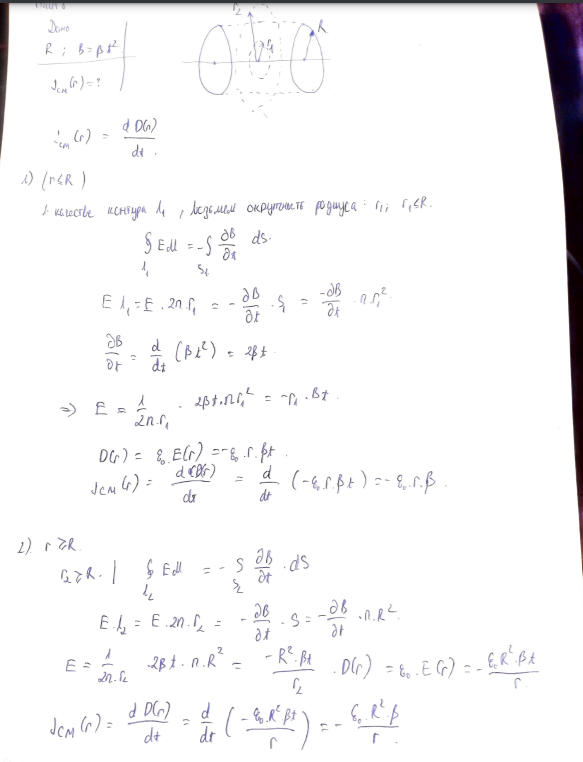 Дано
R ; B = βt²
Jсм(r) = ?
r₂ r₁ R
Jсм(r) = dD(r)/dt.
1) (r ≤ R)
В качестве контура l₁, возьмем окружность радиуса: r₁; r₁ ≤ R.
∮_{l₁} E dl = -∫_{S₁} ∂B/∂t ds.
E l₁ = E · 2π · r₁ = - ∂B/∂t · S₁ = -∂B/∂t · π r₁².
∂B/∂t = d/dt (βt²) = 2βt.
⇒ E = 1/(2π·r₁) · 2βt·π r₁² = -r₁ · βt.
D(r) = ε₀ · E(r) = -ε₀ · r · βt.
Jсм(r) = dD(r)/dt = d/dt (-ε₀ r · βt) = -ε₀ · r · β.
2) r ≥ R.
r₂ ≥ R. | ∮_{l₂} E dl = -∫_{S₂} ∂B/∂t · dS
E·l₂ = E · 2π · r₂ = - ∂B/∂t · S = -∂B/∂t · π · R².
E = 1/(2π·r₂) · 2βt · π · R² = -R²·βt/r₂ . D(r) = ε₀ · E(r) = - ε₀R²·βt/r
Jсм(r) = dD(r)/dt = d/dt (-ε₀·R²βt/r) = - ε₀·R²·β/r.